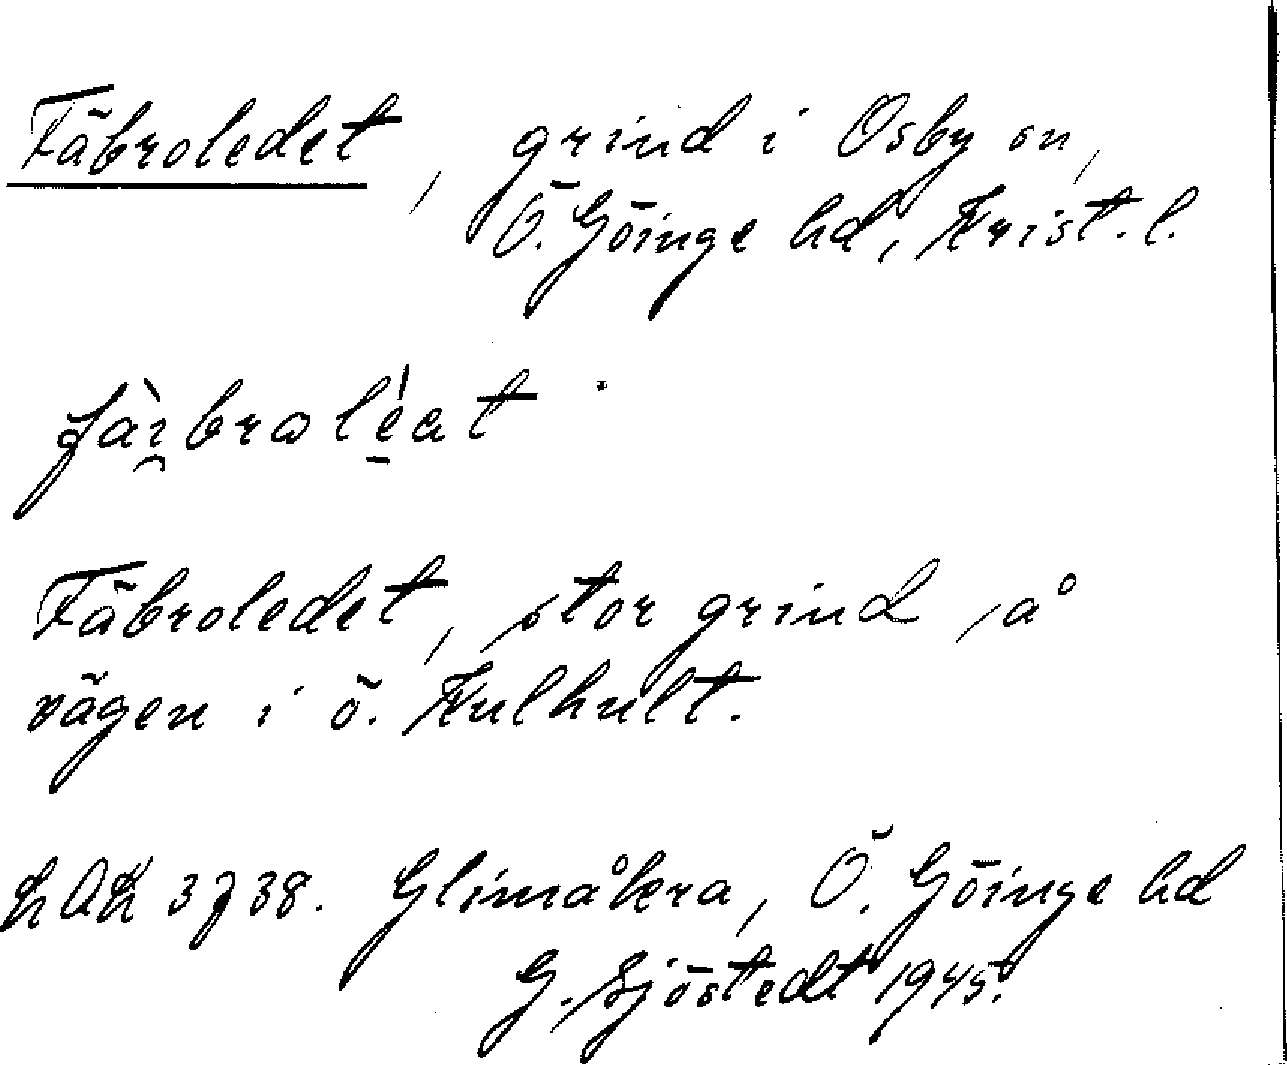 Fäbroledet, grind i Osby sn,
Ö. Göinge hd, Krist. l.
fàɪ̯broléat
Fäbroledet, stor grind å
vägen i ö. Kulhult.
LAL 3738. Glimåkra, Ö. Göinge hd
G. Sjöstedt 1945.